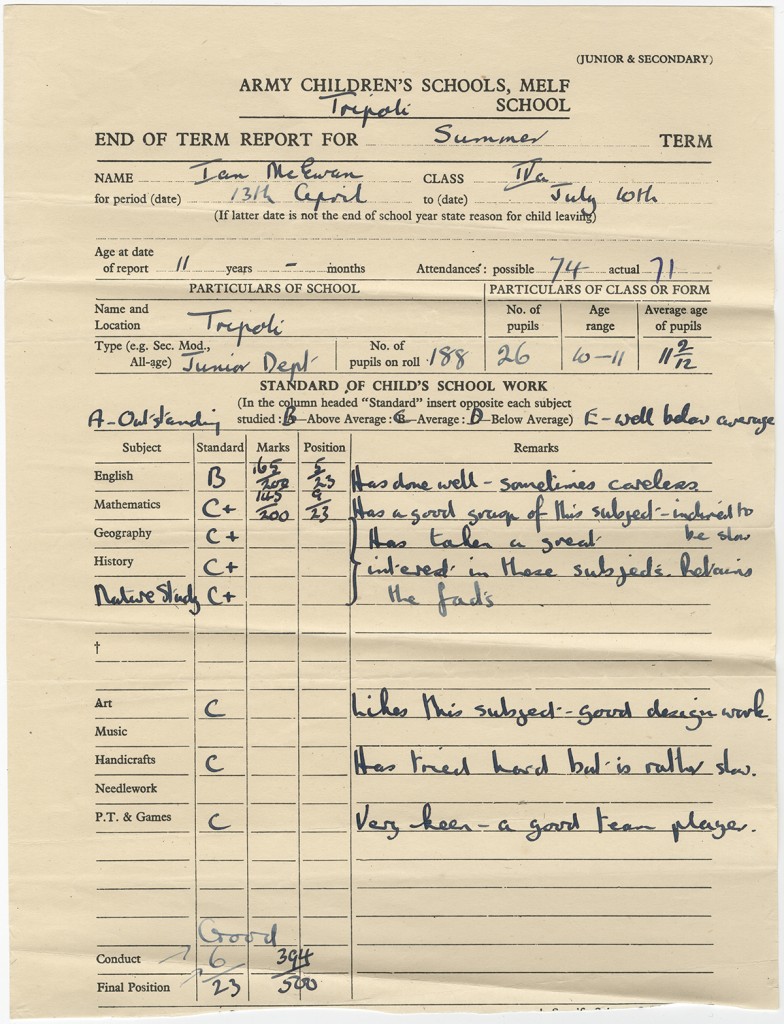 (JUNIOR & SECONDARY)
ARMY CHILDREN'S SCHOOLS, MELF
Tripoli SCHOOL
END OF TERM REPORT FOR Summer TERM
NAME Ian McEwan CLASS IVa
for period (date) 13th April to (date) July 10th
(If latter date is not the end of school year state reason for child leaving)
Age at date
of report 11 years - months Attendances: possible 74 actual 71
PARTICULARS OF SCHOOL PARTICULARS OF CLASS OR FORM
Name and
Location Tripoli
No. of
pupils
Age
range
Average age
of pupils
Type (e.g. Sec. Mod.,
All-age) Junior Dept
No. of
pupils on roll 188
26 10-11 11 2/12
STANDARD OF CHILD'S SCHOOL WORK
(In the column headed "Standard" insert opposite each subject
A-Outstanding studied: B-Above Average: C-Average: D-Below Average) E-well below average
Subject Standard Marks Position Remarks
English B 165/200 5/23 Has done well - sometimes careless.
Mathematics C+ 145/200 9/23 Has a good grasp of this subject - inclined to
be slow
Geography C+ Has taken a great
History C+ interest in these subjects. Retains
Nature Study C+ the facts
†
Art C Likes this subject - good design work.
Music
Handicrafts C Has tried hard but is rather slow.
Needlework
P.T. & Games C Very keen - a good team player.
Good
Conduct
Final Position 6/23 394/500